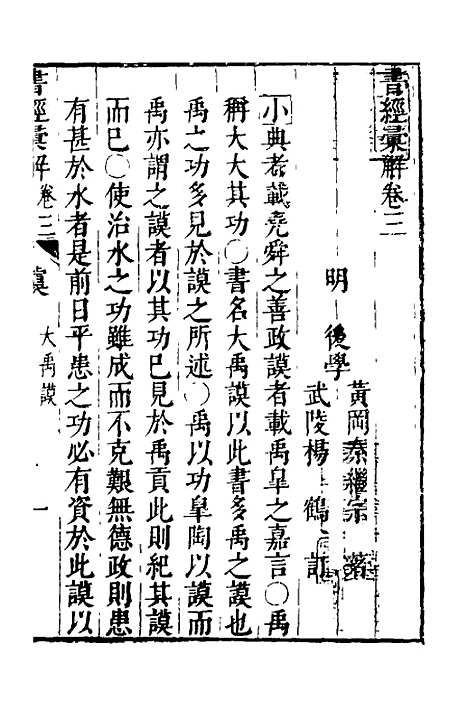 書經彙解卷三
明 後學
黃岡秦繼宗
武陵楊 鶴 訂
小典者載堯舜之善政謨者載禹皐之嘉言○禹
稱大大其功○書名大禹謨以此書多禹之謨也
禹之功多見於謨之所述○禹以功皐陶以謨而
禹亦謂之謨者以其功已見於禹貢此則紀其謨
而已○使治水之功雖成而不克艱無德政則患
有甚於水者是前日平患之功必有資於此謨以
書經彙解卷三
虞
大禹謨
一